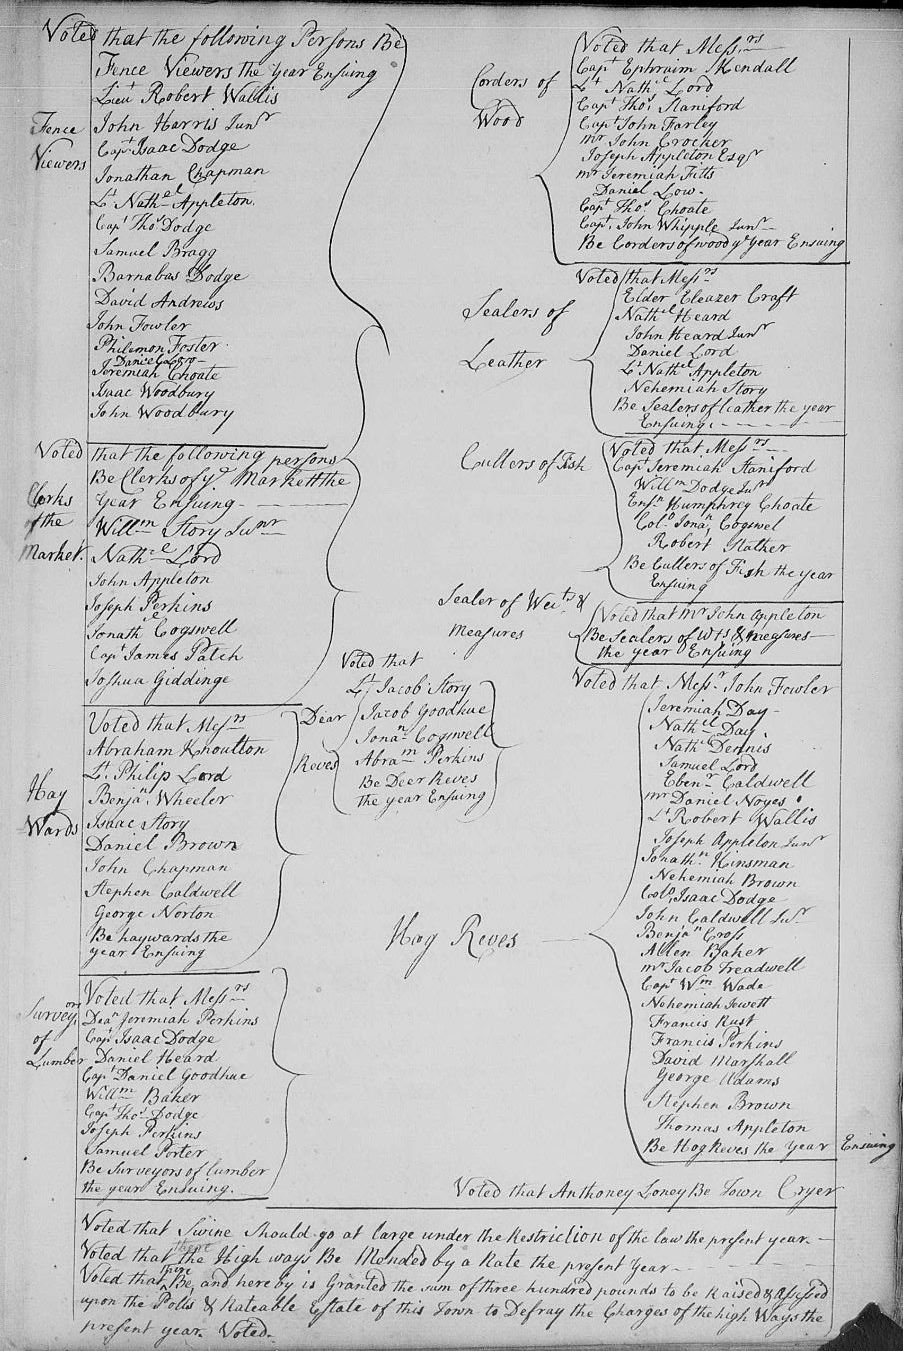 Voted that the following Persons Be
Fence Viewers the Year Ensuing
Fence
Viewers
Lieut Robert Wallis
John Harris Junr
Capt Isaac Dodge
Jonathan Chapman
Lt Nathel Appleton.
Capt Thos Dodge
Samuel Bragg
Barnabas Dodge
David Andrews
John Fowler
Philemon Foster
Daniel
Jeremiah Choate
Isaac Woodbury
John Woodbury
Voted that the following persons
Be Clerks of ye Markett the
Year Ensuing
Clerks
of the
Market.
Willm Story Junr
Nathel Lord
John Appleton
Joseph Perkins
Jonath Cogswell
Capt James Patch
Joshua Giddinge
Voted that Messrs
Hay
Wards
Abraham Knoulton
Lt Philip Lord
Benjan Wheeler
Isaac Story
Daniel Brown
John Chapman
Stephen Caldwell
George Norton
Be haywards the
year Ensuing
Voted that Messrs
Surveyors
of
Lumber
Dean Jeremiah Perkins
Capt Isaac Dodge
Daniel Heard
Capt Daniel Goodhue
Willm Baker
Capt Thos Dodge
Joseph Perkins
Samuel Porter
Be Surveyors of lumber
the year Ensuing.
Corders of
Wood
Voted that Messrs
Capt Ephraim Kendall
Lt Nathel Lord
Capt Thos Staniford
Capt John Farley
mr John Crocker
Joseph Appleton Esqr
mr Jeremiah Fitts
Daniel Low
Capt Thos Choate
Capt. John Whipple Junr
Be Corders of wood ye year Ensuing
Sealers of
Leather
Voted that Messrs
Elder Eleazer Craft
Nathel Heard
John Heard Junr
Daniel Lord
Lt Nathel Appleton
Nehemiah Story
Be Sealers of leather the year
Ensuing
Cullers of Fish
Voted that Messrs
Capt Jeremiah Staniford
Willm Dodge Junr
Ensn Humphrey Choate
Colo Jonan Cogswel
Robert Stather
Be Cullers of Fish the year
Ensuing
Sealer of Weits &
Measures
Voted that mr John appleton
Be Sealers of Wts & measures
the year Ensuing
Voted that
Dear
Reves
Lt Jacob Story
Jacob Goodhue
Jonan Cogswell
Abram Perkins
Be Deer Reves
the year Ensuing
Hog Reves
Voted that Messr John Fowler
Jeremiah Day
Nathel Day
Nathel Dennis
Samuel Lord
Ebenr Caldwell
mr Daniel Noyes
Lt Robert Wallis
Joseph Appleton Junr
Jonathn Kinsman
Nehemiah Brown
Colo Isaac Dodge
John Caldwell Junr
Benjan Cross
Allen Baker
mr Jacob Treadwell
Capt Wm Wade
Nehemiah Jewett
Francis Rust
Francis Perkins
David Marshall
George Adams
Stephen Brown
Thomas Appleton
Be Hog Reves the Year Ensuing
Voted that Anthoney Loney Be Town Cryer
Voted that Swine Should go at large under the Restriction of the law the present year
Voted that the High ways Be Mended by a Rate the present Year
Voted that thire Be, and here by is Granted the sum of three hundred pounds to be Raised & assessed
upon the Polls & Rateable Estate of this Town to Defray the Charges of the high Ways the
present year. Voted.